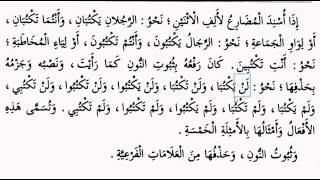 إِذَا أُسْنِدَ الْمُضَارِعُ لِأَلِفِ الْاثْنَيْنِ ؛ نَحْوُ : الرَّجُلَانِ يَكْتُبَانِ ، وَأَنْتُمَا تَكْتُبَانِ ،
أَوْ لِوَاوِ الْجَمَاعَةِ ؛ نَحْوُ : الرِّجَالُ يَكْتُبُونَ ، وَأَنْتُمْ تَكْتُبُونَ ، أَوْ لِيَاءِ الْمُخَاطَبَةِ ؛
نَحْوُ : أَنْتِ تَكْتُبِينَ . كَانَ رَفْعُهُ بِثُبُوتِ النُّونِ كَمَا رَأَيْتَ ، وَنَصْبُهُ وَجَزْمُهُ
بِحَذْفِهَا ؛ نَحْوُ : لَنْ يَكْتُبَا ، وَلَنْ تَكْتُبَا ، وَلَنْ يَكْتُبُوا ، وَلَنْ تَكْتُبُوا ، وَلَنْ تَكْتُبِي ،
وَلَمْ يَكْتُبَا ، وَلَمْ تَكْتُبَا ، وَلَمْ يَكْتُبُوا ، وَلَمْ تَكْتُبُوا ، وَلَمْ تَكْتُبِي . وَتُسَمَّى هَذِهِ
الْأَفْعَالُ وَأَمْثَالُهَا بِالْأَمْثِلَةِ الْخَمْسَةِ .
وَثُبُوتُ النُّونِ ، وَحَذْفُهَا مِنَ الْعَلَامَاتِ الْفَرْعِيَّةِ .